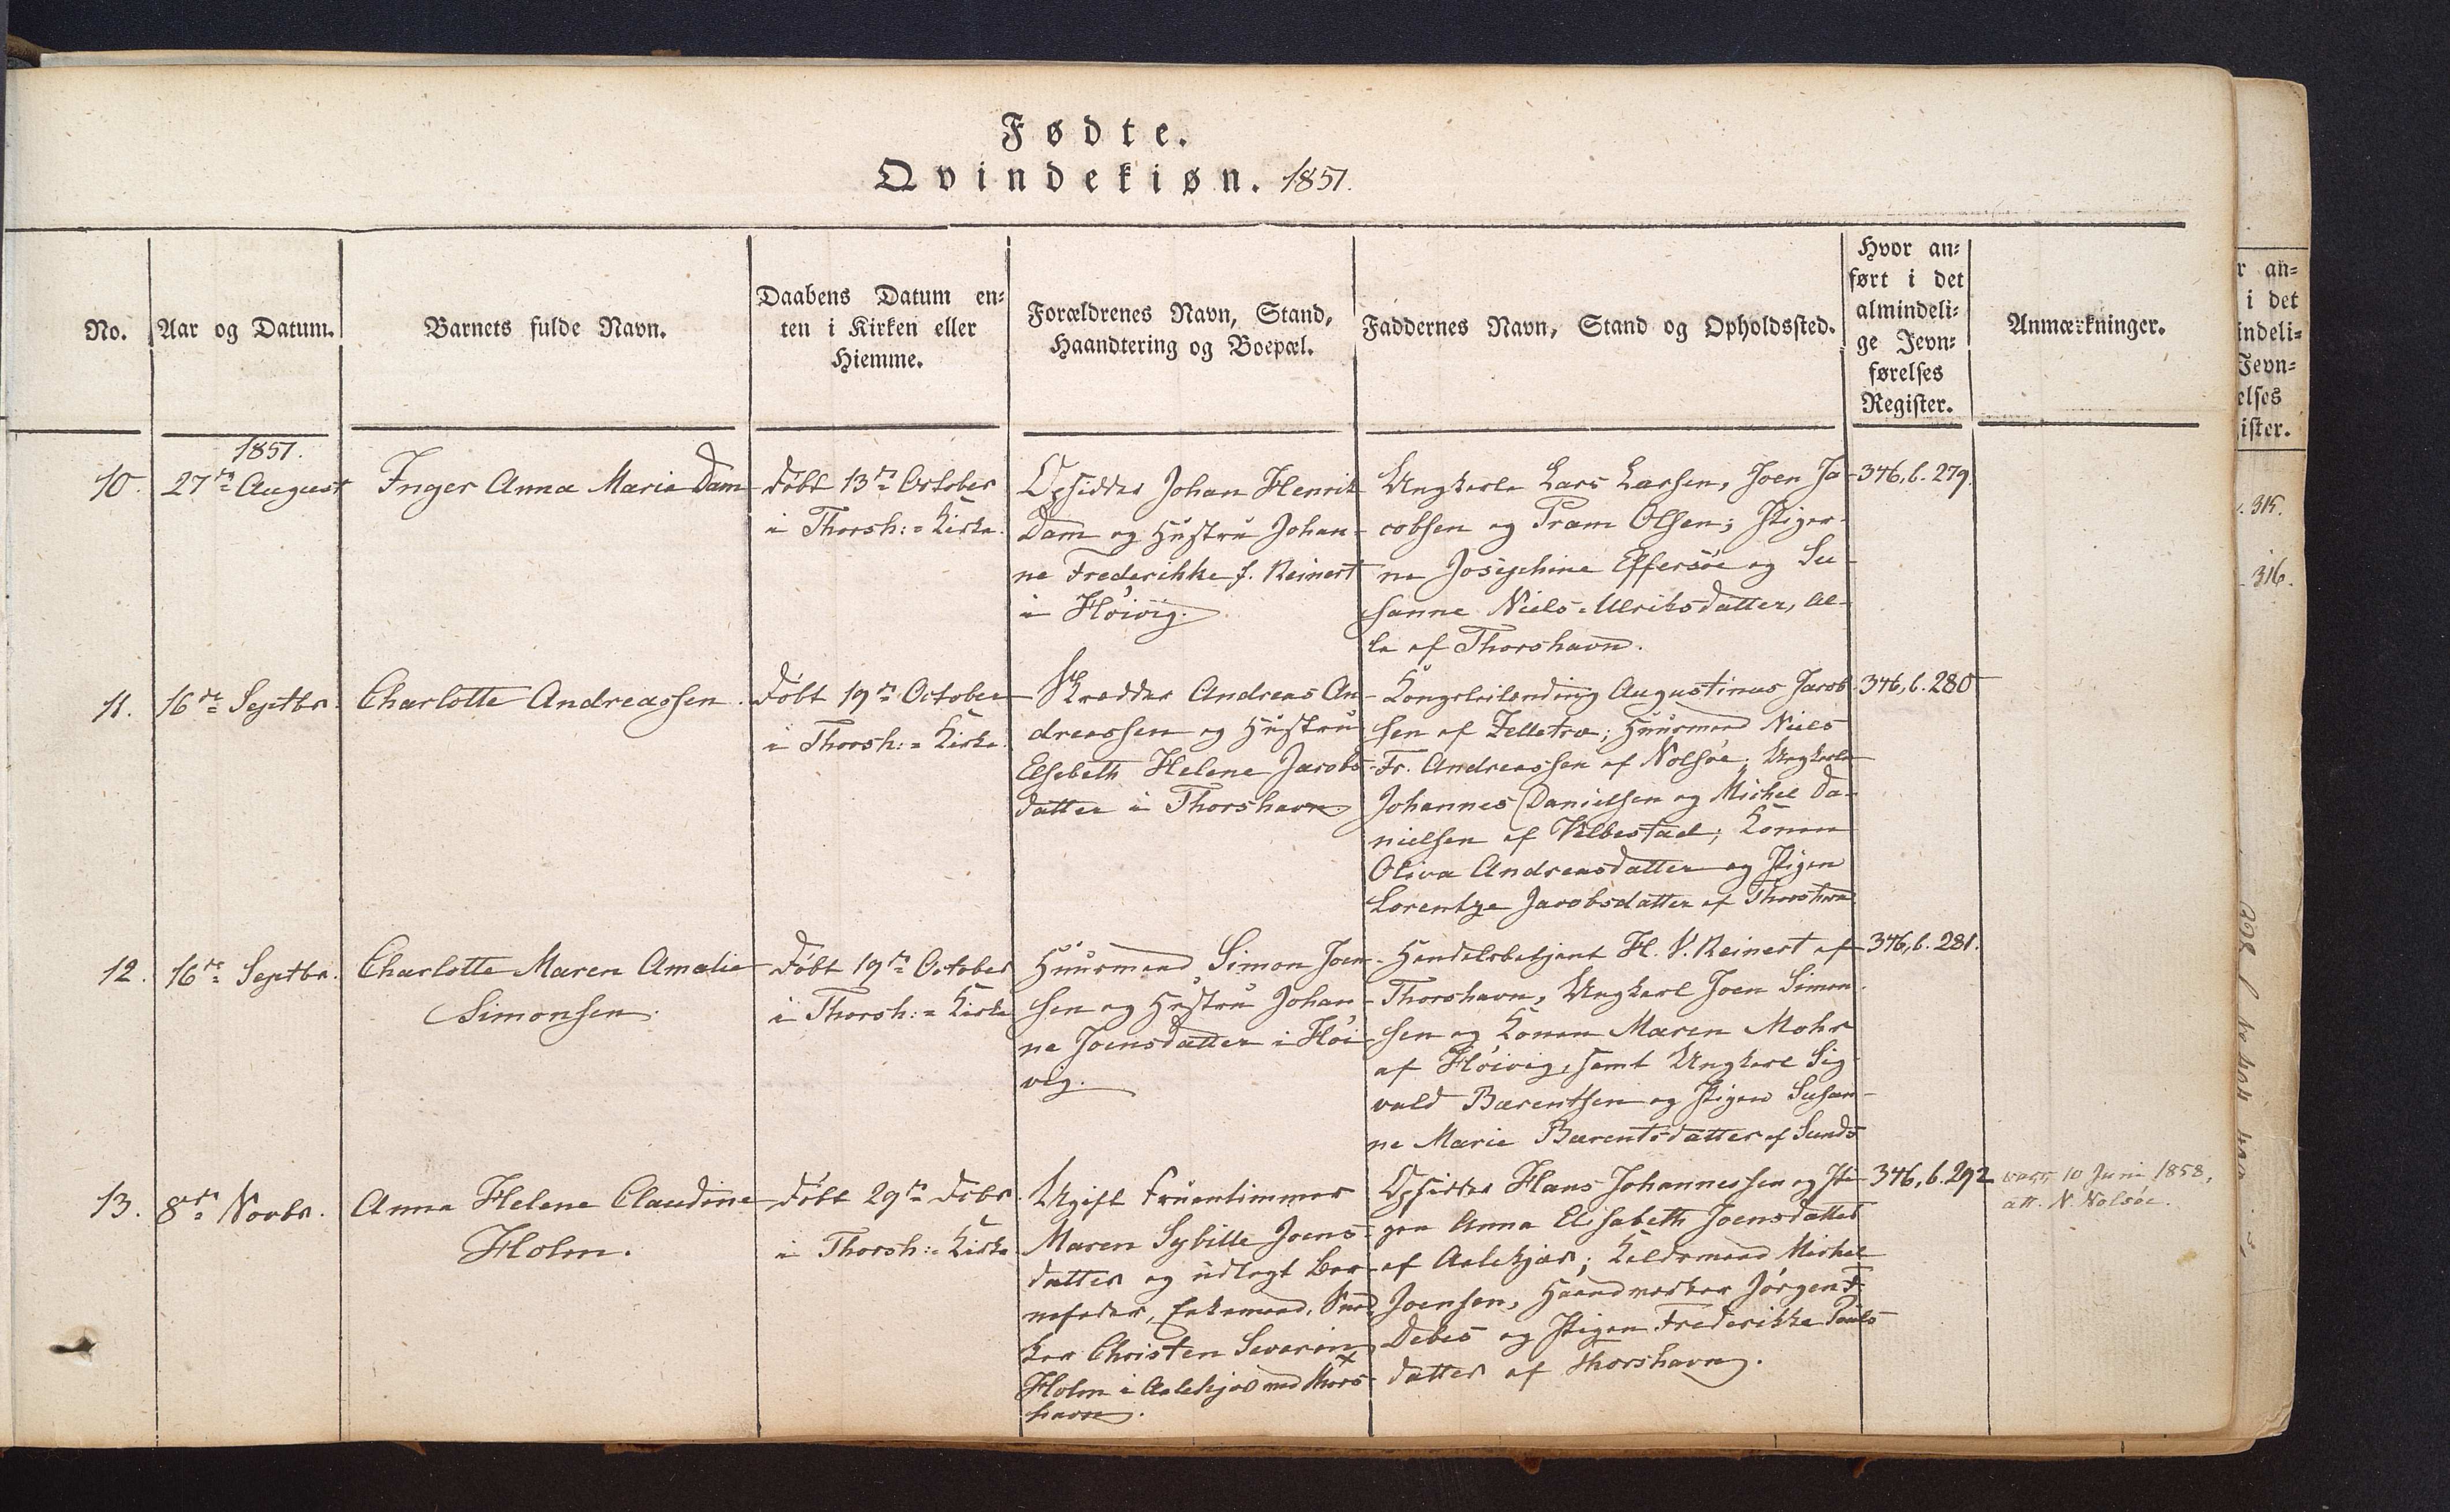 Fødte.
Qvindekiøn. 1851.
No.
Aar og Datum.
Barnets fulde Navn.
Daabens Datum en-
ten i Kirken eller
Hiemme.
Forældrenes Navn, Stand,
Haandtering og Boepæl.
Faddernes Navn, Stand og Opholdssted.
Hvor an-
ført i det
almindeli-
ge Jevn-
førelses
Register.
Anmærkninger.
1851.
10.
27de August
Inger Anna Marie Dam
Døbt 13de October
i Thorsh:s Kirke.
Opsidder Johan Henrik
Dam og Hustru Johan-
ne Frederikke f. Reinert
i Høivig.
Ungkarle Lars Larsen, Joen Ja-
cobsen og Pram Olsen; Piger-
ne Josephine Effersøe og Su-
sanne Niels-Ulriksdatter, al-
le af Thorshavn.
346, b. 279.
11.
16de Septbr.
Charlotte Andreassen.
Døbt 19de October
i Thorsh:s Kirke.
Skrædder Andreas An-
dreassen og Hustru
Elsebeth Helene Jacobs-
datter i Thorshavn
Kongsleilending Augustinus Jacob-
sen af Felletræ; Huusmand Niels
Fr. Andreassen af Nolsøe; Ungkarle
Johannes Danielsen og Michel Da-
nielsen af Velbestad; Konen
Oliva Andreasdatter og Pigen
Lorentze Jacobsdatter af Thorshavn
346, b. 280
12.
16de Septbr.
Charlotte Maren Amalie
Simonsen.
Døbt 19de October
i Thorsh:s Kirke
Huusmand Simon Joen-
sen og Hustru Johan-
ne Joensdatter i Høi-
vig.
Handelsbetjent H. V. Reinert af
Thorshavn, Ungkarl Joen Simon-
sen og Konen Maren Mohr
af Høivig, samt Ungkarl Sig-
vald Barentsen og Pigen Susan-
ne Marie Barentsdatter af Sund
346, b. 281.
13.
8de Novbr.
Anna Helene Claudine
Holm.
Døbt 29de Decbr.
i Thorsh:s Kirke
Ugift Fruentimmer
Maren Sybille Joens-
datter og udlagt Bar-
nefader, Enkemand, Sned-
ker Christen Severin
Holm i Aalekjær ved Thors-
havn.
Opsidder Hans Johannessen og Pi-
gen Anna Elisabeth Joensdatter
af Aalekjær; Michel
Joensen, Haandværker Jørgen F.
Debes og Pigen Frederikke Pouls-
datter af Thorshavn.
346, b. 292
vacc. 10 Juni 1858,
att. N. Nolsöe.
r an-
i det
indeli-
Jevn-
elses
ister.
315.
316.